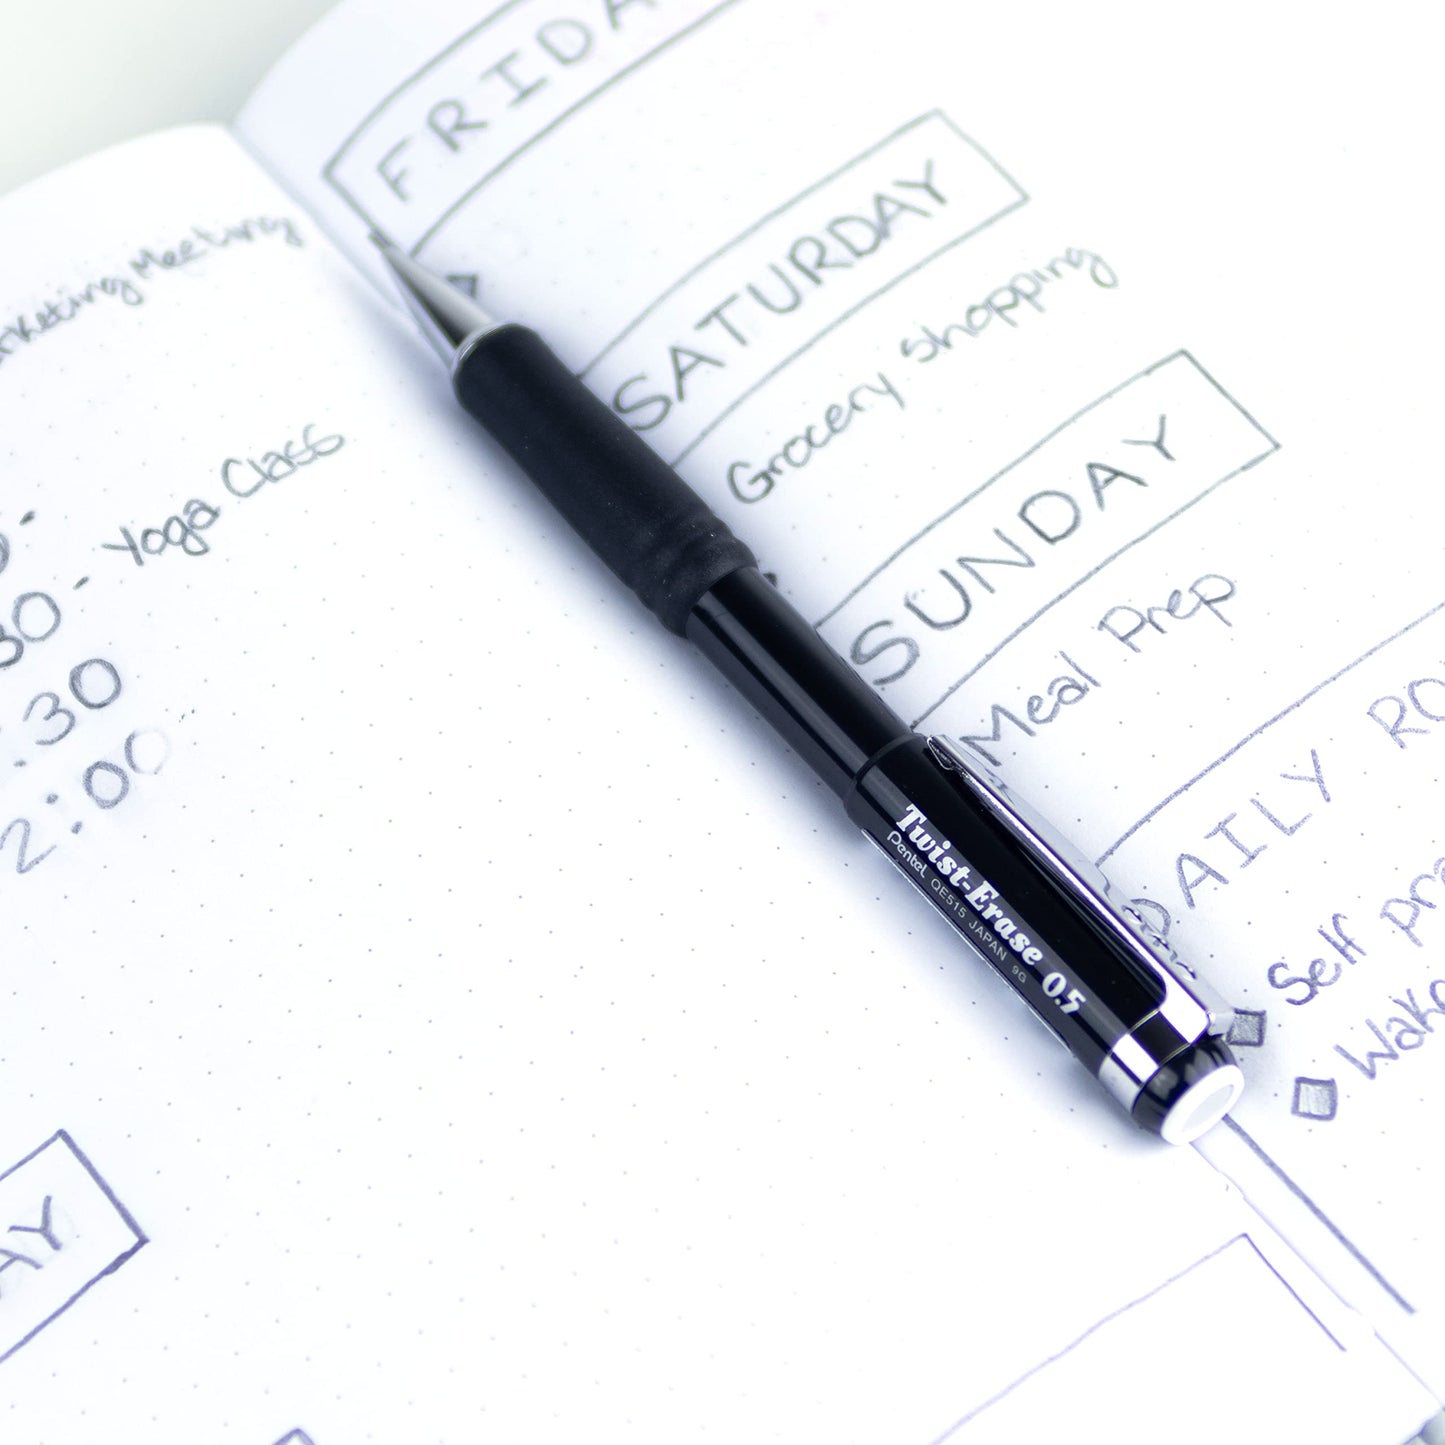 Meeting
Yoga Class
30 -
:30
2:00
AY
FRIDA
SATURDAY
Grocery shopping
SUNDAY
Meal Prep
DAILY RO
Self pra
Wake
Twist-Erase 0.5
Pentel QE515 JAPAN 9G